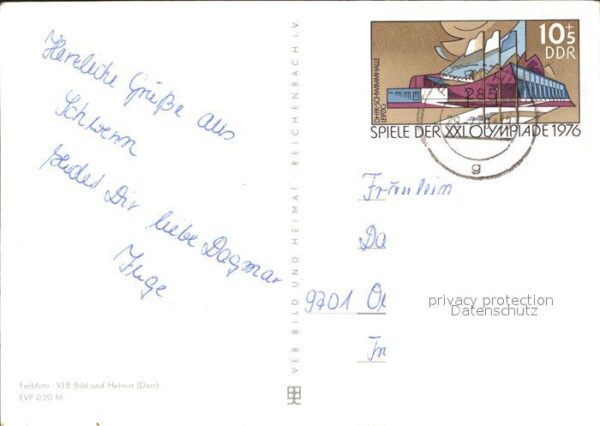 Herzliche Grüße aus
Schwerin
sendet Dir liebe Dagmar
Inge
Farbfoto: VEB Bild und Heimat (Darr)
EVP 0,20 M
VEB BILD UND HEIMAT · REICHENBACH i. V.
10+5
DDR
DHfK-SCHWIMMHALLE
LEIPZIG
SPIELE DER XXI. OLYMPIADE 1976
g
Fräulein
Da
9701
privacy protection
Datenschutz